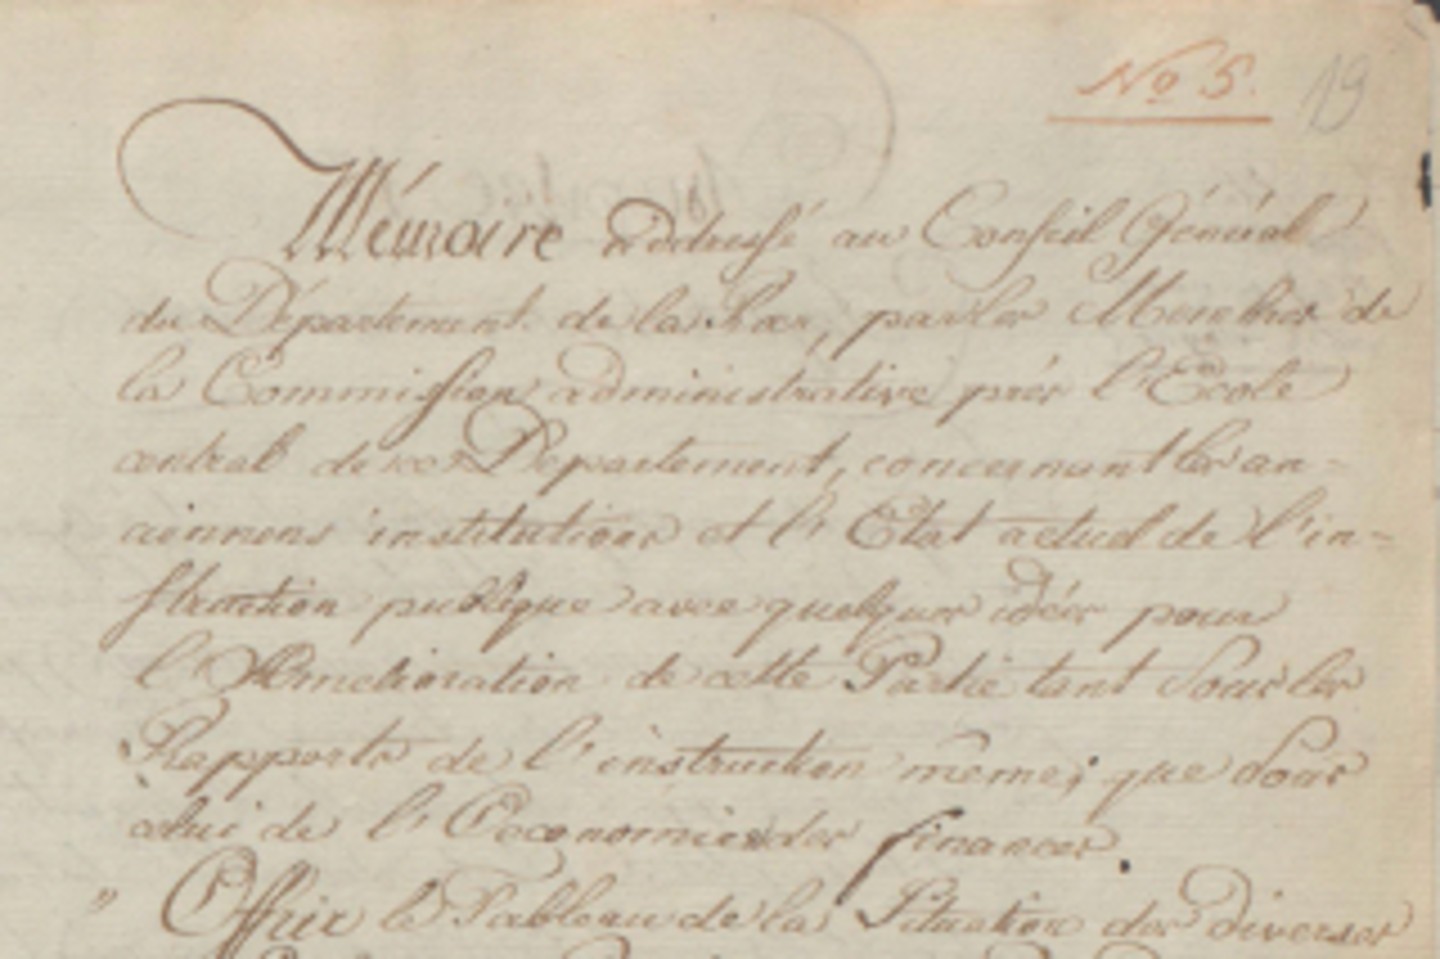 No 5. 19
Mémoire addressé au Conseil Général
du Département de la Roer, par les Membres de
la Commission administrative près l'Ecole
central de ce Département, concernant les an-
ciennes institutions et l'Etat actuel de l'in-
struction publique avec quelques idées pour
l'Amelioration de cette Partie tant sous les
Rapports de l'instruction même, que sous
celui de l'Oeconomie des finances.
" Offrir le Tableau de la Situation des diverses